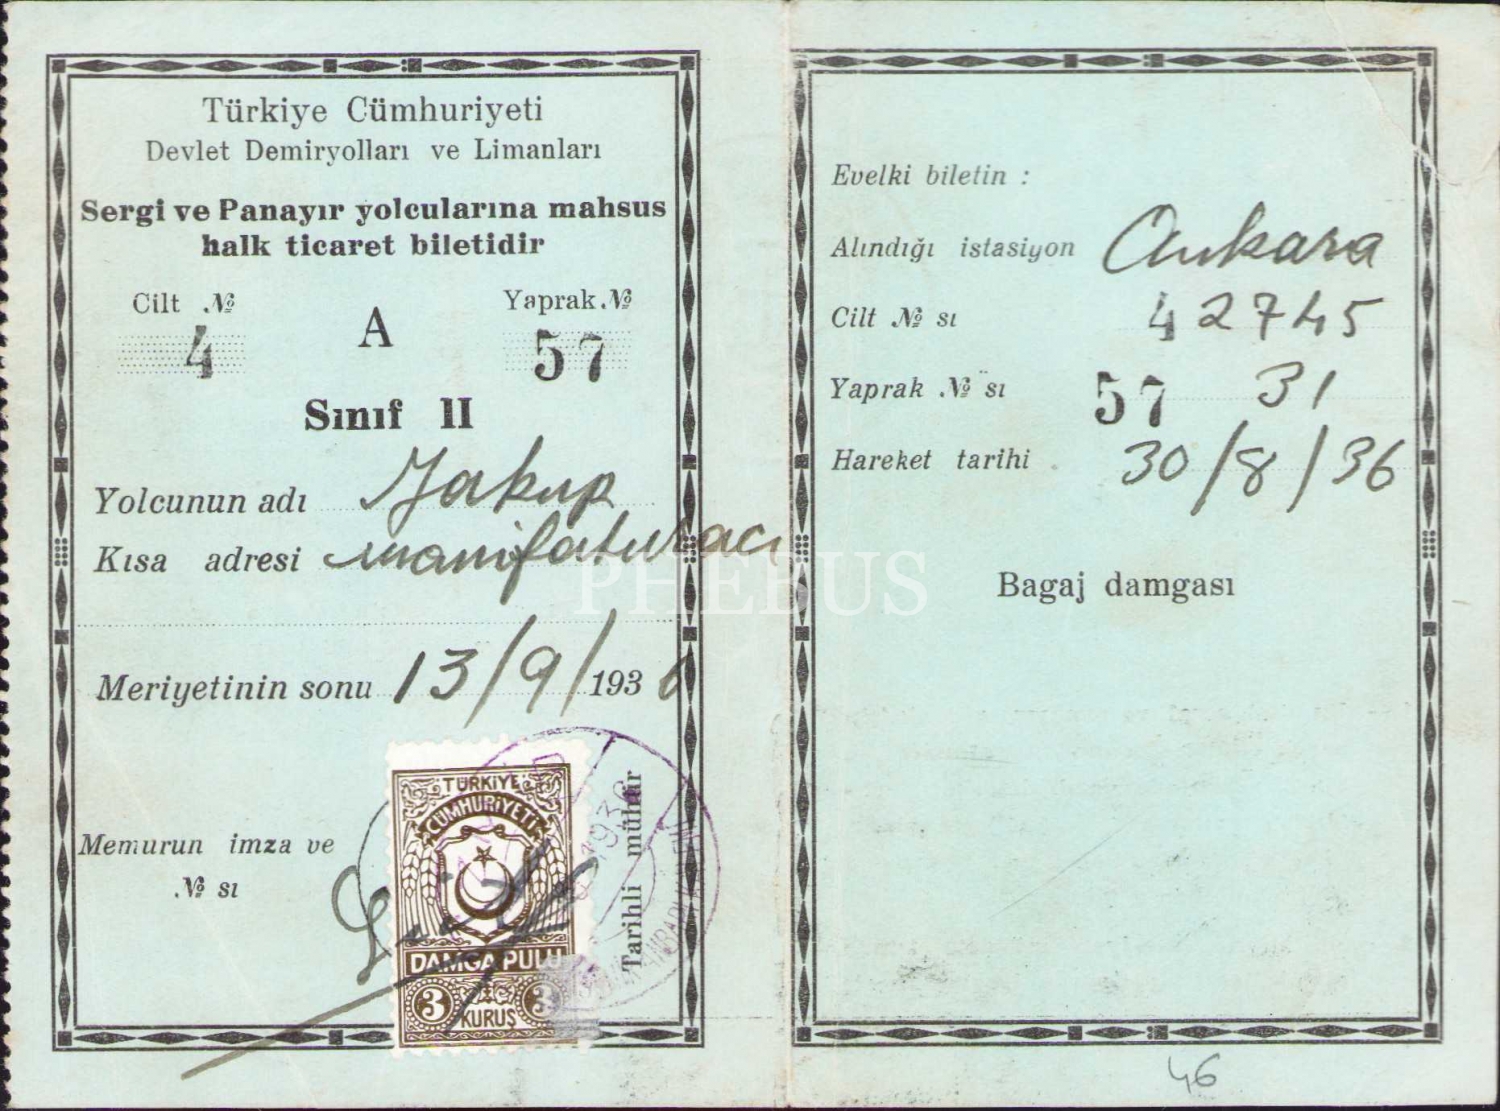 Türkiye Cümhuriyeti
Devlet Demiryolları ve Limanları
Sergi ve Panayır yolcularına mahsus
halk ticaret biletidir
Cilt № A Yaprak №
4 57
Sınıf II
Yolcunun adı Yakup
Kısa adresi manifaturacı
Meriyetinin sonu 13/9/1936
Memurun imza ve
№ sı
Tarihli mühür
TÜRKİYE
CÜMHURİYETİ
DAMGA PULU
3 KURUŞ 3
Evelki biletin :
Alındığı istasiyon Ankara
Cilt № sı 4 2745
Yaprak № sı 57 31
Hareket tarihi 30/8/36
Bagaj damgası
46
PHEBUS